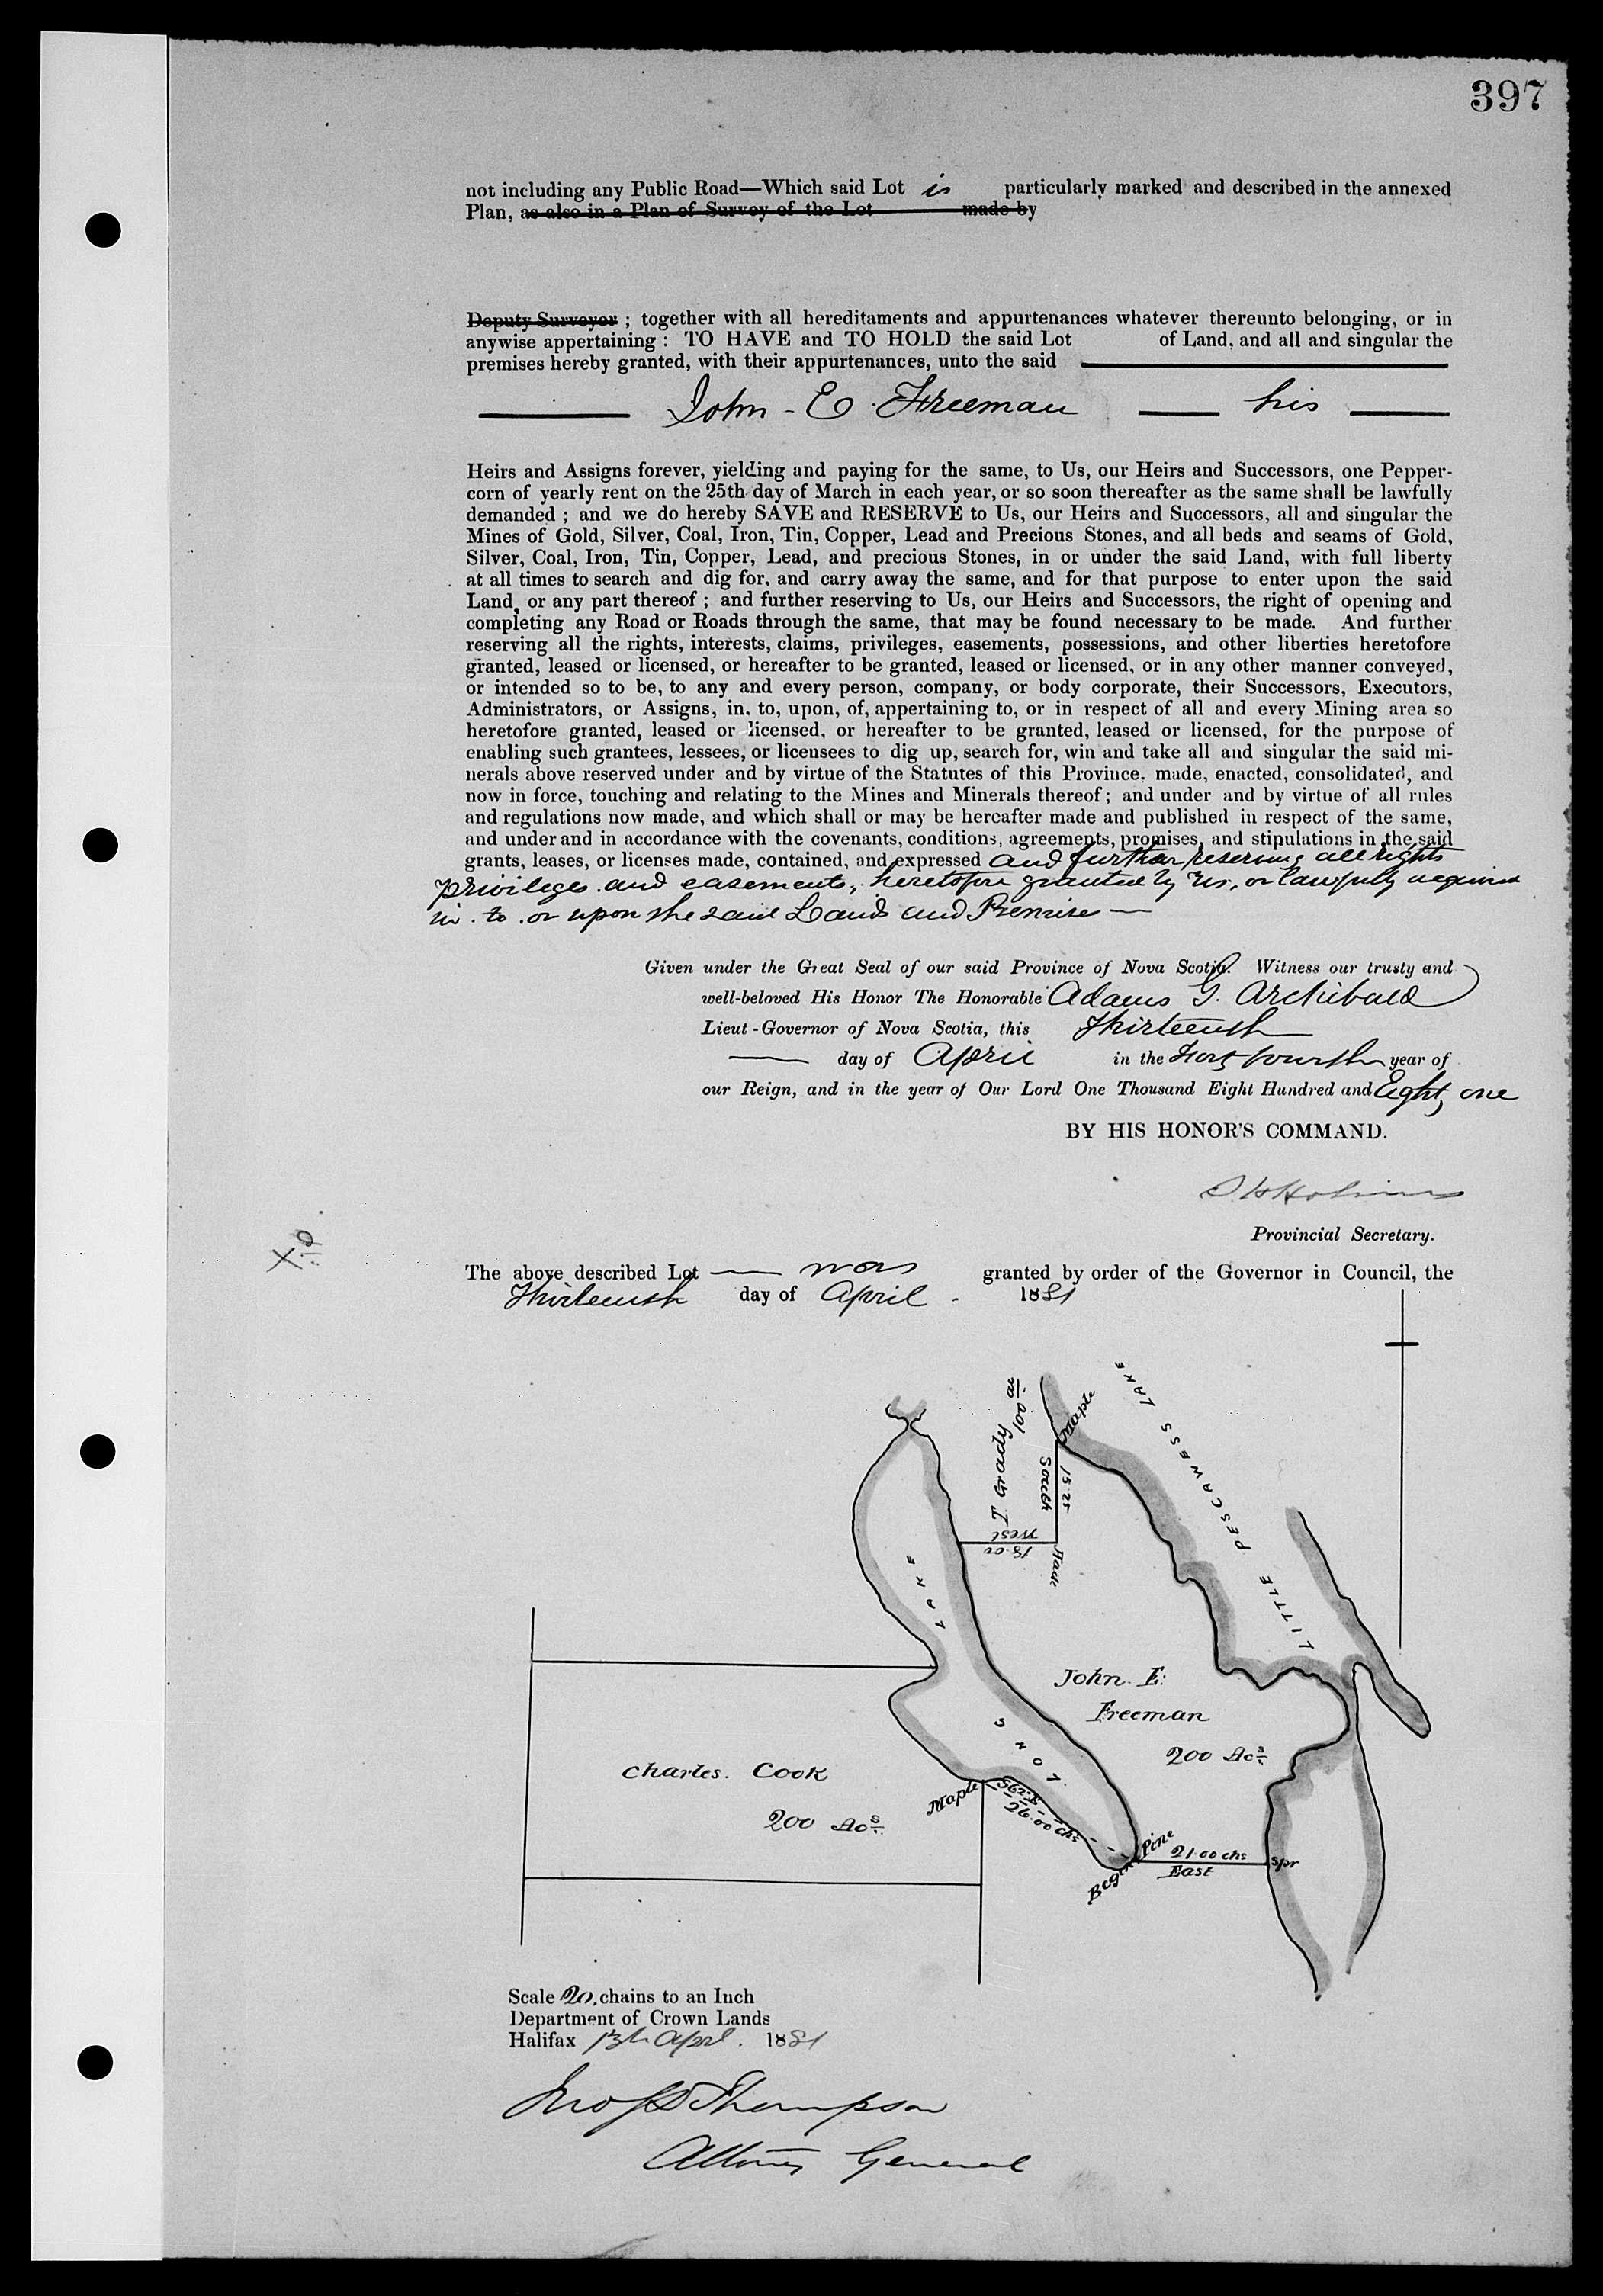 397
not including any Public Road—Which said Lot is particularly marked and described in the annexed
Plan, as also in a Plan of Survey of the Lot made by
Deputy Surveyor ; together with all hereditaments and appurtenances whatever thereunto belonging, or in
anywise appertaining : TO HAVE and TO HOLD the said Lot of Land, and all and singular the
premises hereby granted, with their appurtenances, unto the said
John - E. Freeman his
Heirs and Assigns forever, yielding and paying for the same, to Us, our Heirs and Successors, one Pepper-
corn of yearly rent on the 25th day of March in each year, or so soon thereafter as the same shall be lawfully
demanded ; and we do hereby SAVE and RESERVE to Us, our Heirs and Successors, all and singular the
Mines of Gold, Silver, Coal, Iron, Tin, Copper, Lead and Precious Stones, and all beds and seams of Gold,
Silver, Coal, Iron, Tin, Copper, Lead, and precious Stones, in or under the said Land, with full liberty
at all times to search and dig for, and carry away the same, and for that purpose to enter upon the said
Land, or any part thereof ; and further reserving to Us, our Heirs and Successors, the right of opening and
completing any Road or Roads through the same, that may be found necessary to be made. And further
reserving all the rights, interests, claims, privileges, easements, possessions, and other liberties heretofore
granted, leased or licensed, or hereafter to be granted, leased or licensed, or in any other manner conveyed,
or intended so to be, to any and every person, company, or body corporate, their Successors, Executors,
Administrators, or Assigns, in, to, upon, of, appertaining to, or in respect of all and every Mining area so
heretofore granted, leased or licensed, or hereafter to be granted, leased or licensed, for the purpose of
enabling such grantees, lessees, or licensees to dig up, search for, win and take all and singular the said mi-
nerals above reserved under and by virtue of the Statutes of this Province, made, enacted, consolidated, and
now in force, touching and relating to the Mines and Minerals thereof ; and under and by virtue of all rules
and regulations now made, and which shall or may be hereafter made and published in respect of the same,
and under and in accordance with the covenants, conditions, agreements, promises, and stipulations in the said
grants, leases, or licenses made, contained, and expressed and further reserving all rights
privileges and easements, heretofore granted by Us, or lawfully acquired
in . to . or upon the said Lands and Premises —
Given under the Great Seal of our said Province of Nova Scotia. Witness our trusty and
well-beloved His Honor The Honorable Adams G. Archibald
Lieut-Governor of Nova Scotia, this Thirteenth
day of April in the Forty fourth year of
our Reign, and in the year of Our Lord One Thousand Eight Hundred and Eighty one
BY HIS HONOR'S COMMAND.
S H Holmes
Provincial Secretary.
The above described Lot was granted by order of the Governor in Council, the
Thirteenth day of April 1881
LITTLE PESCAWESS LAKE
Maple
T. Grady
100 ac
South
15.25
West
18.00
LONG LAKE
John. E:
Freeman
200 Acs
Charles. Cook
200 Acs
Maple
S62E
26.00 chs
Begin Pine
21.00 chs
East
Spr
Scale 20. chains to an Inch
Department of Crown Lands
Halifax 13th April. 1881
Jno S D Thompson
Attorney General